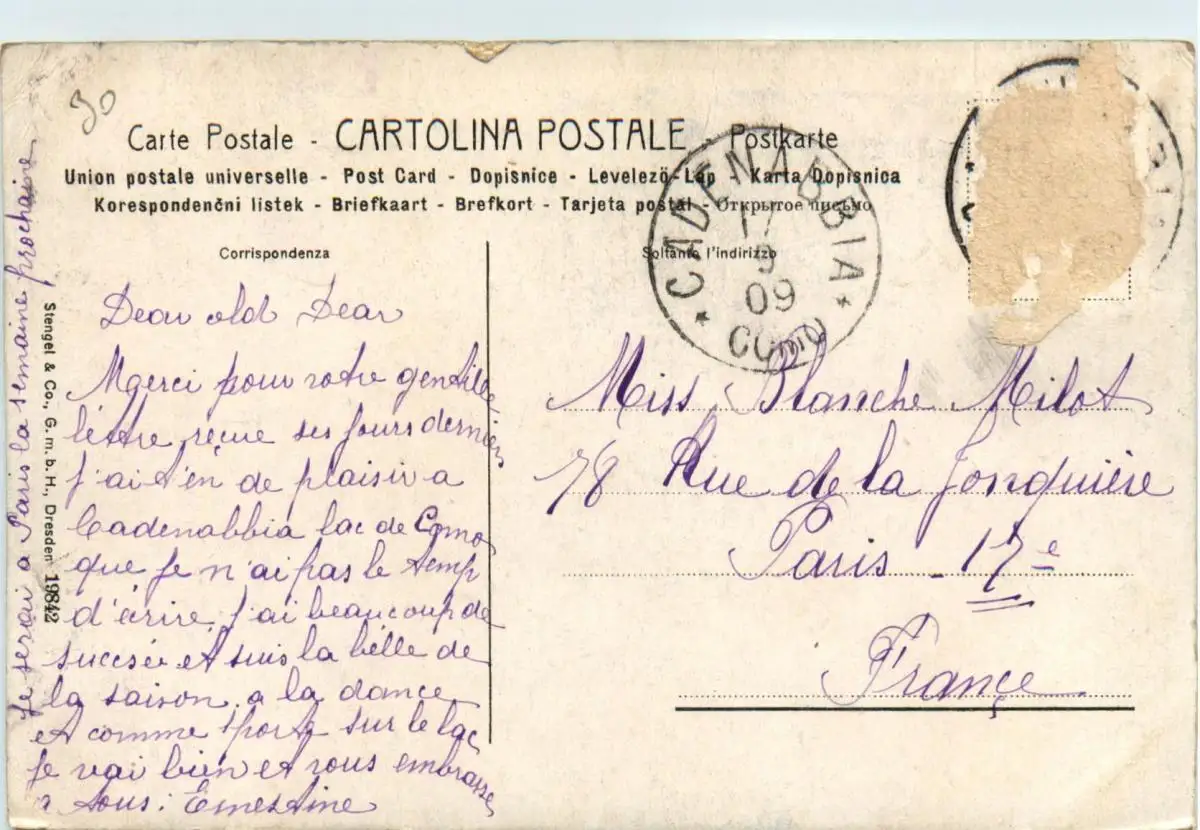 30
Carte Postale - CARTOLINA POSTALE - Postkarte
Union postale universelle - Post Card - Dopisnice - Levelező-Lap - Karta Dopisnica
Korespondenčni listek - Briefkaart - Brefkort - Tarjeta postal - Открытое письмо
Corrispondenza
Soltanto l'indirizzo
CADENABBIA
17
9
09
* COMO *
Dear old Dear
Merci pour votre gentille
lettre reçue ses jours derniers
j'ai t'en de plaisir a
Cadenabbia lac de Como
que je n'ai pas le temp
d'écrire, j'ai beaucoup de
succsée et suis la bélle de
la saison, a la dance
et comme sport sur le lac
je vai bien et vous embrasse
a tous: Ernestine
je serai a Paris la semaine prochaine
Stengel & Co., G. m. b. H., Dresden 19842
Miss Blanche Milot
78 Rue de la Jonquière
Paris - 17e
France